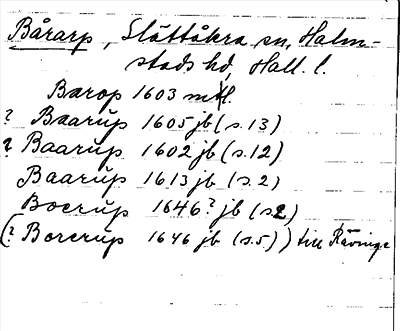 Bårarp, Slättåkra sn, Halm-
stads hd, Hall. l.
Barop 1603 mtl.
? Baarup 1605 jb (s.13)
? Baarup 1602 jb (s.12)
Baarup 1613 jb (s.2)
Bocrup 1646? jb (s.2)
(? Borcrup 1646 jb (s.5)) till Rävinge